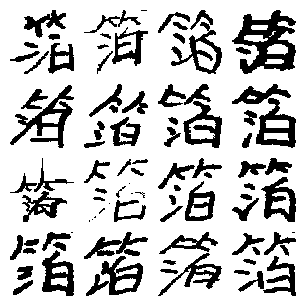 箔箔箔箔
箔箔箔箔
箔箔箔箔
箔箔箔箔